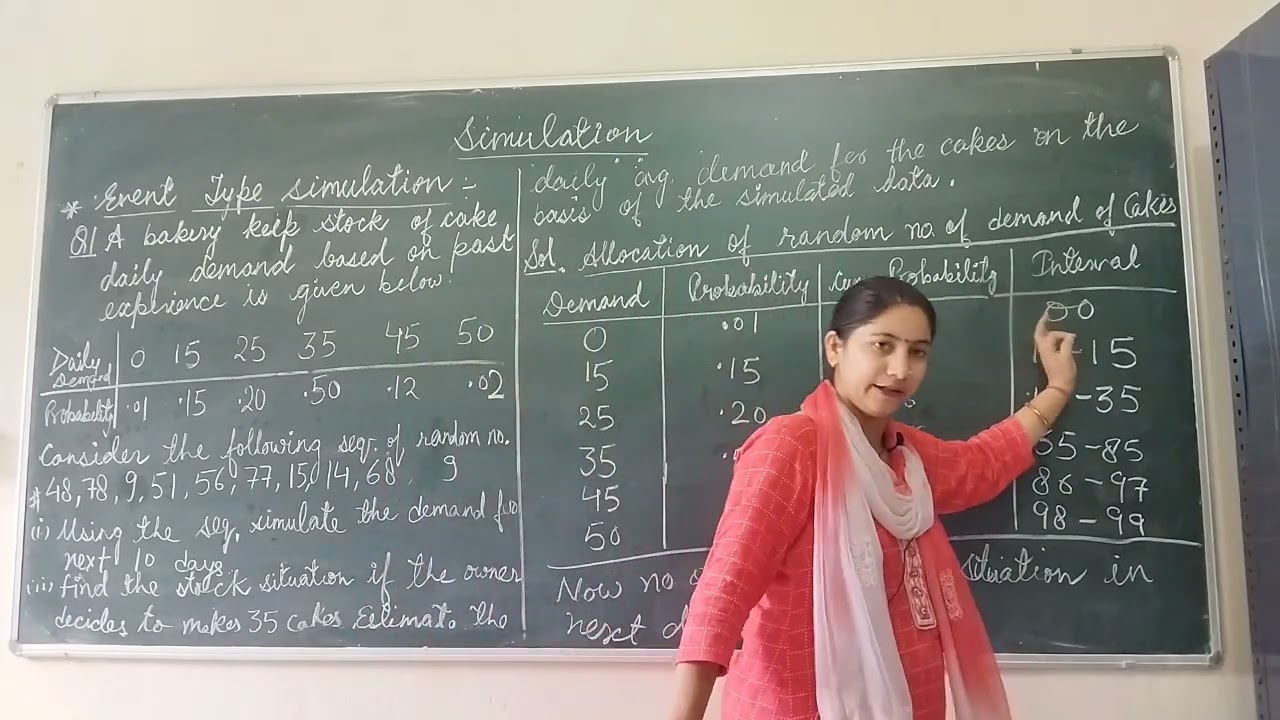 Simulation
* Event Type simulation :-
Q1 A bakery keep stock of cake
daily demand based on past
experience is given below.
Daily Demand 0 15 25 35 45 50
Probability .01 .15 .20 .50 .12 .02
Consider the following seq. of random no.
# 48, 78, 9, 51, 56, 77, 15, 14, 68, 9
(i) Using the seq. simulate the demand for
next 10 days
(ii) Find the stock situation if the owner
decides to makes 35 cakes Estimate the
daily avg. demand for the cakes on the
basis of the simulated data.
Sol. Allocation of random no. of demand of Cakes
Demand Probability Cum Probability Interval
0 .01 00
15 .15 -15
25 .20 -35
35 35-85
45 86-97
50 98-99
Now no situation in
next